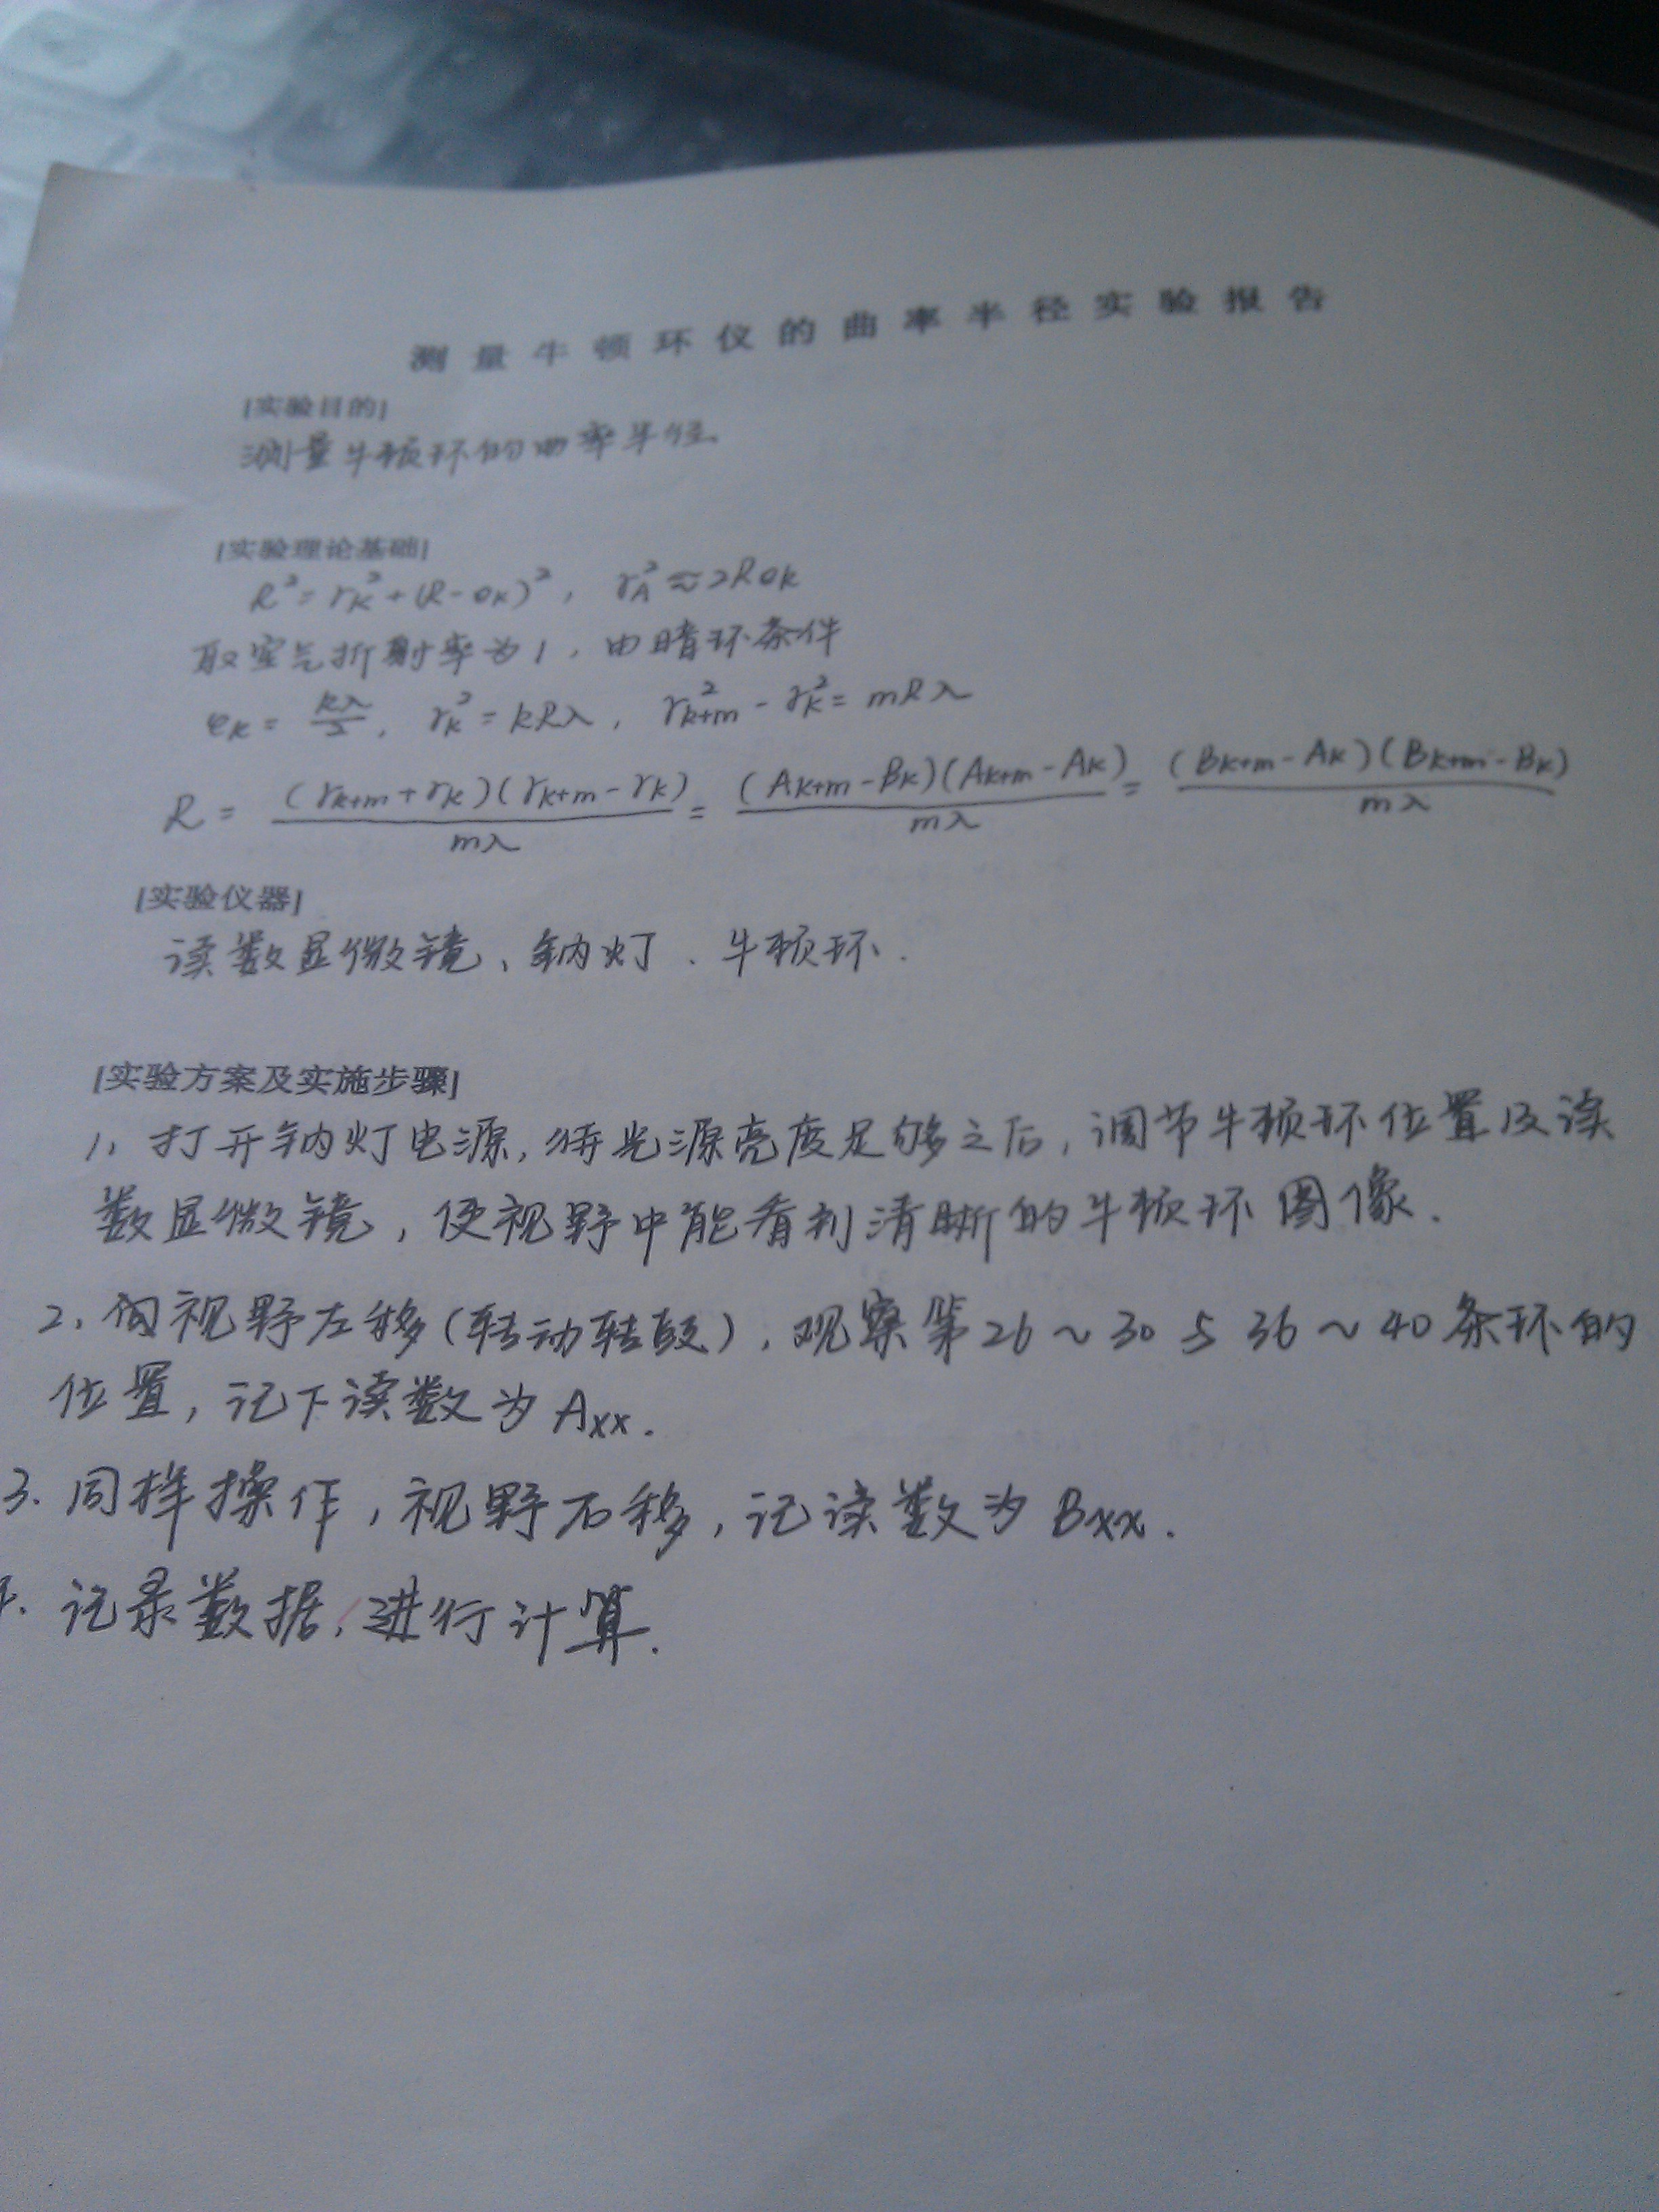 测量牛顿环仪的曲率半径实验报告
[实验目的]
测量牛顿环的曲率半径.
[实验理论基础]
R²=r_k²+(R-e_k)², r_A²≈2Re_k
取空气折射率为1,由暗环条件
e_k = kλ/2, r_k²=kRλ, r_{k+m}²-r_k²=mRλ
R = (r_{k+m}+r_k)(r_{k+m}-r_k)/mλ = (A_{k+m}-B_k)(A_{k+m}-A_k)/mλ = (B_{k+m}-A_k)(B_{k+m}-B_k)/mλ
[实验仪器]
读数显微镜、钠灯、牛顿环.
[实验方案及实施步骤]
1、打开钠灯电源,待光源亮度足够之后,调节牛顿环位置及读
数显微镜,使视野中能看到清晰的牛顿环图像.
2、向视野左移(转动转鼓),观察第26~30与36~40条环的
位置,记下读数为Axx.
3.同样操作,视野右移,记读数为Bxx.
记录数据,进行计算.